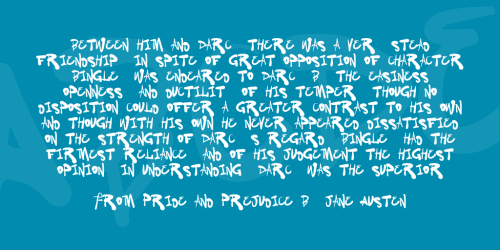 BETWEEN HIM AND DARC THERE WAS A VER STEAD
FRIENDSHIP IN SPITE OF GREAT OPPOSITION OF CHARACTER
BINGLE WAS ENDEARED TO DARC B THE EASINESS
OPENNESS AND DUCTILIT OF HIS TEMPER THOUGH NO
DISPOSITION COULD OFFER A GREATER CONTRAST TO HIS OWN
AND THOUGH WITH HIS OWN HE NEVER APPEARED DISSATISFIED
ON THE STRENGTH OF DARC S REGARD BINGLE HAD THE
FIRMEST RELIANCE AND OF HIS JUDGEMENT THE HIGHEST
OPINION IN UNDERSTANDING DARC WAS THE SUPERIOR
FROM PRIDE AND PREJUDICE B JANE AUSTEN